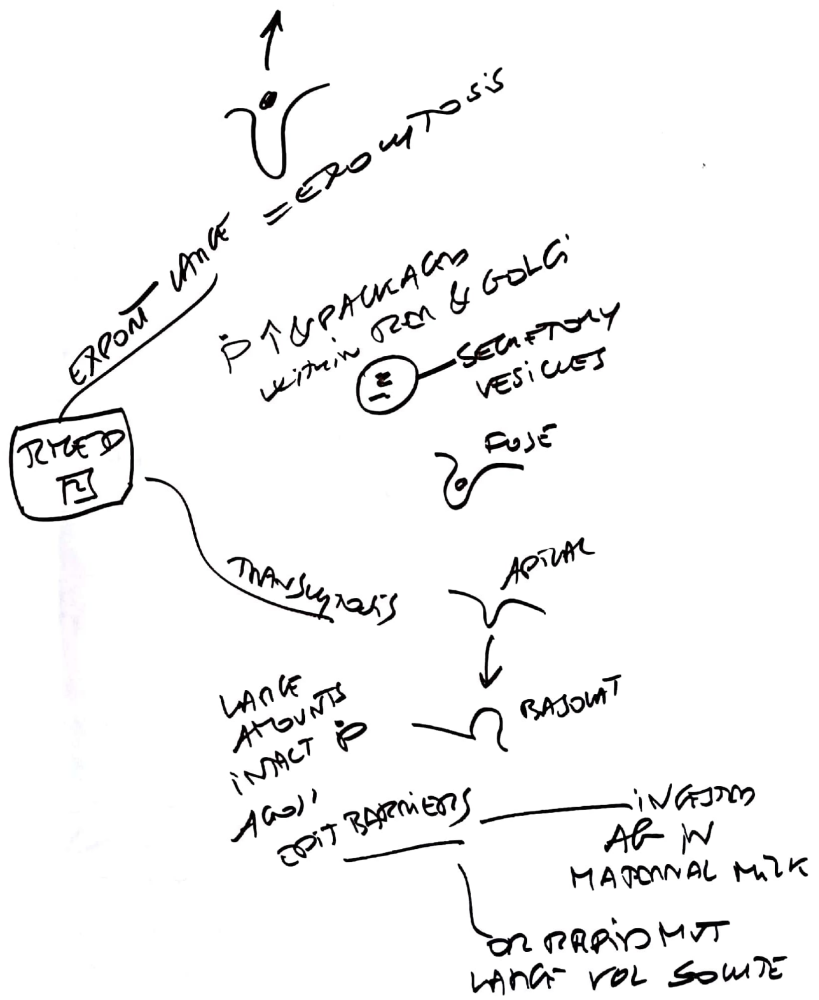 EXPORT LARGE = EXOCYTOSIS
P ↑ & PACKAGED
within RER & GOLGI
SECRETORY
VESICLES
FUSE
TRANSCYTOSIS
APICAL
BASOLAT
LARGE
AMOUNTS
INTACT P
ACROSS
EPIT BARRIERS
INGESTED
AB IN
MATERNAL MILK
OR RAPID MVT
LARGE VOL SOLUTE